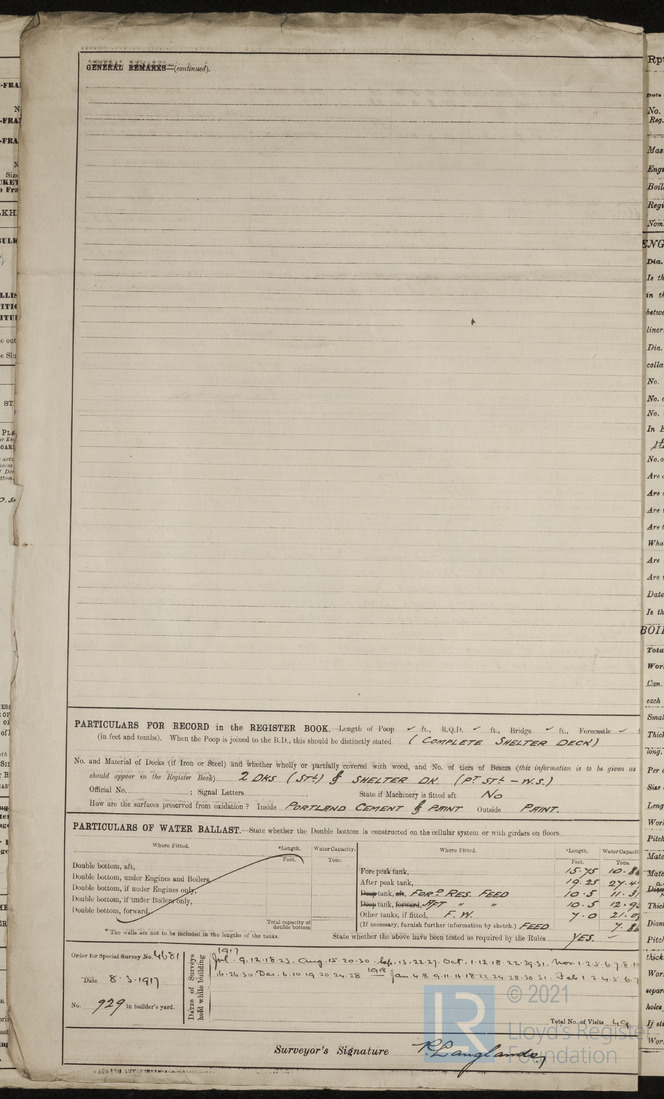 GENERAL REMARKS—(continued).
PARTICULARS FOR RECORD in the REGISTER BOOK.—Length of Poop ✓ ft., R.Q.D. ✓ ft., Bridge ✓ ft., Forecastle ✓
(in feet and tenths). When the Poop is joined to the B.D., this should be distinctly stated (COMPLETE SHELTER DECK)
No. and Material of Decks (if Iron or Steel) and whether wholly or partially covered with wood, and No. of tiers of Beams (this information is to be given as
should appear in the Register Book) 2 DKS (STL) & SHELTER DK. (PT STL – W.S.)
Official No. ; Signal Letters State if Machinery is fitted aft No
How are the surfaces preserved from oxidation? Inside PORTLAND CEMENT & PAINT Outside PAINT.
PARTICULARS OF WATER BALLAST.—State whether the Double bottom is constructed on the cellular system or with girders on floors
Where Fitted. *Length. Water Capacity. Where Fitted. *Length. Water Capacity
Feet. Tons. Feet. Tons.
Double bottom, aft,
Double bottom, under Engines and Boilers,
Double bottom, if under Engines only,
Double bottom, if under Boilers only,
Double bottom, forward,
Total capacity of double bottom
Fore peak tank, 15.75
After peak tank, 19.25
Deep tank, aft, FORD RES. FEED 10.5
Deep tank, forward, AFT " " 10.5
Other tanks, if fitted, F.W. 7.0
(If necessary, furnish further information by sketch.) FEED
* The wells are not to be included in the lengths of the tanks. State whether the above have been tested as required by the Rules YES.
Order for Special Survey No. 4681
Date 8.3.1917.
No. 929 in builder's yard.
DATES of Surveys held while building
1917
Jul. 9.12.18.23. Aug. 15.20.30. Sep. 13.22.27. Oct. 1.12.18.22.29.31. Nov. 1.2.5.6.7.8
16.26.30 Dec. 6.10.19.20.24.28 1918 Jan 4.8.9.11.16.18.22.24.28.30.31. Feb 1.2.4.5.6.7
Total No. of Visits 49
Surveyor's Signature R. Langlands
LR
© 2021
Lloyd's Register
Foundation